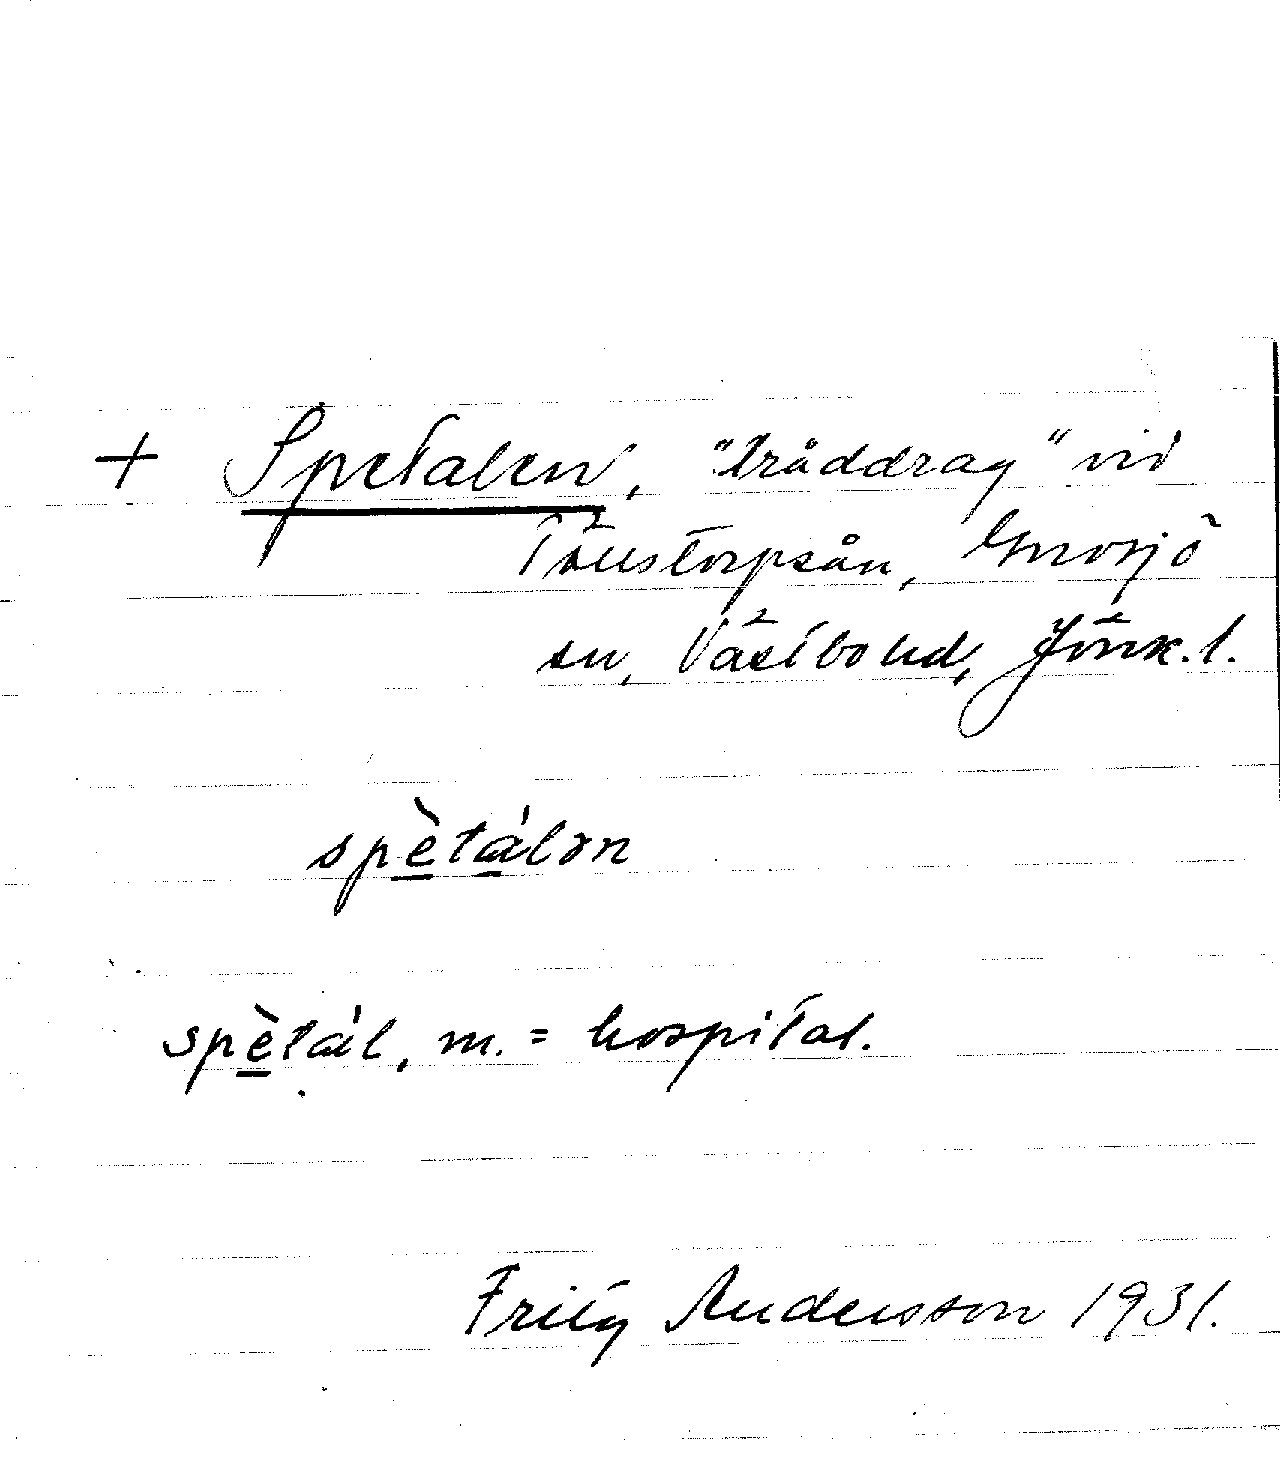 + Spetalen, "tråddrag" vid
Töustorpsån, Gnosjö
sn, Västbo hd, Jönk. l.
spètálən
spètál, m. = hospital.
Fritz Andersson 1931.